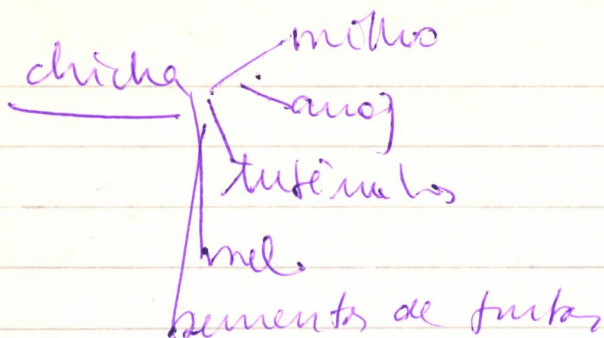 chicha
milho
arroz
tubérculos
mel.
sementes de frutas